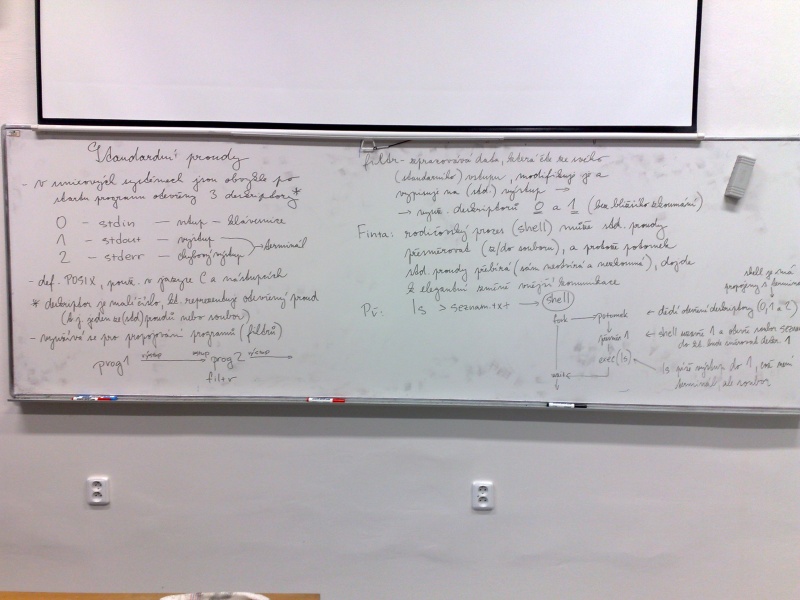 Standardní proudy
- v unixových systémech jsou obvykle po
startu programu otevřeny 3 deskriptory*
0 - stdin - vstup - klávesnice
1 - stdout - výstup
2 - stderr - chybový výstup
terminál
- def. POSIX, použ. v jazyce C a nástupcích
* deskriptor je malé číslo, kt. reprezentuje otevřený proud
(to j. jeden ze (std) proudů nebo soubor)
- využívá se pro propojování programů (filtrů)
prog1 výstup vstup prog2 výstup
filtr
filtr - zpracovává data, která čte ze svého
(standardního) vstupu, modifikuje je a
vypisuje na (std.) výstup →
→ využ. deskriptorů 0 a 1 (bez bližšího zkoumání)
Finta: rodičovský proces (shell) může std. proudy
přesměrovat (z/do souboru), a protože potomek
std. proudy přebírá (sám neotvírá a nezkoumá), dojde
k elegantní změně vnější komunikace
Př: ls > seznam.txt → shell
fork → potomek
přesměr 1
exec(ls)
wait
shell je má
propojeny s terminálem
← dědí otevřené deskriptory (0,1 a 2)
← shell uzavře 1 a otevře soubor seznam
do kt. bude směrovat deskr. 1
ls píše výstup do 1, což není
terminál, ale soubor